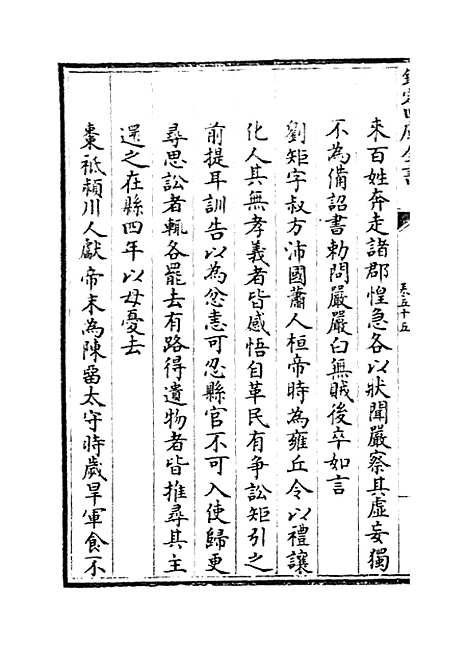 欽定四庫全書
卷五十五
來百姓奔走諸郡惶急各以狀聞嚴察其虛妄獨
不為備詔書勅問嚴嚴白無賊後卒如言
劉矩字叔方沛國蕭人桓帝時為雍丘令以禮讓
化人其無孝義者皆感悟自革民有爭訟矩引之
前提耳訓告以為忿恚可忍縣官不可入使歸更
尋思訟者輒各罷去有路得遺物者皆推尋其主
還之在縣四年以母憂去
棗祗潁川人獻帝末為陳留太守時歲旱軍食不